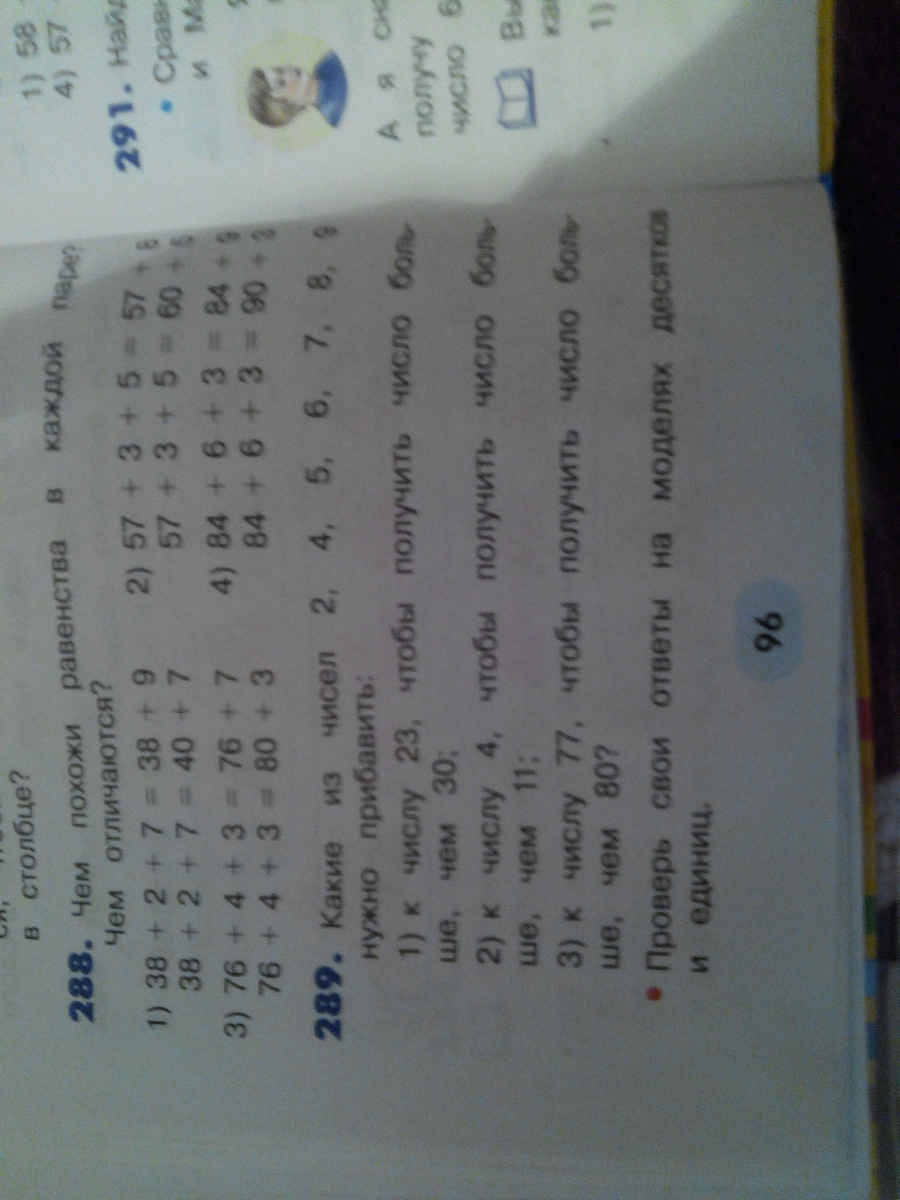 в столбце?
288. Чем похожи равенства в каждой паре?
Чем отличаются?
1) 38 + 2 + 7 = 38 + 9 2) 57 + 3 + 5 = 57 + 8
38 + 2 + 7 = 40 + 7 57 + 3 + 5 = 60 + 5
3) 76 + 4 + 3 = 76 + 7 4) 84 + 6 + 3 = 84 + 9
76 + 4 + 3 = 80 + 3 84 + 6 + 3 = 90 + 3
289. Какие из чисел 2, 4, 5, 6, 7, 8, 9
нужно прибавить:
1) к числу 23, чтобы получить число боль-
ше, чем 30;
2) к числу 4, чтобы получить число боль-
ше, чем 11;
3) к числу 77, чтобы получить число боль-
ше, чем 80?
• Проверь свои ответы на моделях десятков
и единиц.
96
1) 58
4) 57
291. Найд
• Сравн
и Ма
А я
получу
число 6
Вы
1)